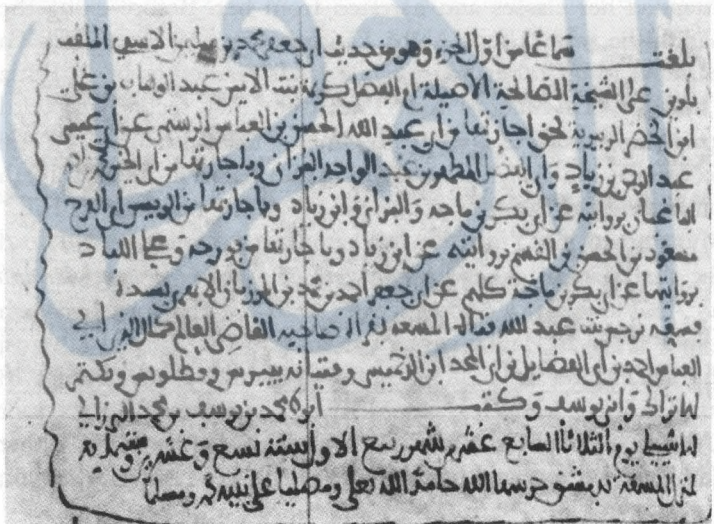 بلغت سماعا من اول الجزء وهو من حديث ابي جعفر محمد بن سليمن الاسدي الملقب
بلوين على الشيخة الصالحة الاصيلة ام الفضل كريمة بنت الامين عبد الوهاب بن علي
ابن الخضر الزبيرية بحق اجازتها من ابي عبد الله الحسن بن العباس الرستمي عن ابي عيسى
عبد الرحمن بن زياد وابي الفضل المطهر بن عبد الواحد البزاني وباجازتها من ابي الخير
بروايته عن ابي بكر بن ماجه والبزاني وابن زياد وباجازتها من الرييس ابي الفرج
مسعود بن الحسن بن القسم بروايته عن ابن زياد وباجازتها من وعلي اللباد
بروايتهما عن ابي بكر بن ماجة كلهم عن ابي جعفر احمد بن محمد بن المرزبان الابهري بسنده
وسمعه بنت عبد الله فتاة المسمعة بقراة صاحبه القاضي العالم كمال الدين ابي
العباس احمد بن ابي الفضايل بن ابي المجد ابن الدخميسي وفتيانه بيبرس وبكتمر
الاتراك وابن يوسف وكتب محمد بن يوسف بن محمد البرزالي
الاشبيلي يوم الثلاثا السابع عشر من شهر ربيع الاول سنة تسع وعشرين وستماية
بمنزل المسمعة بدمشق حرسها الله حامدا لله تعلى ومصليا على نبيه محمد ومسلما